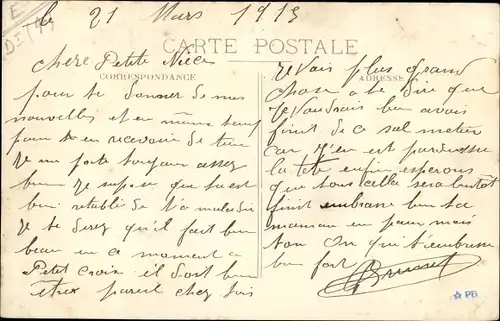 le 21 Mars 1915
CARTE POSTALE
CORRESPONDANCE
ADRESSE
chere Petite Niece
pour te donner de mes
nouvelles et en même temp
pour en recevoir de tiene
Je me porte toujour assez
bien Je supose que tu est
bien retablie de ta maladie
Je te diret qu'il fait bien
beau en ce moment a
Petit Croix il doit bien
être pareil chez
Je vais plus grand
chose a te dire que
Je Voudrais bien avais
finit de ce sal metier
car J'en est pardessus
la tete enfin esperons
que tous cella sera bientot
finit embrasse bien ta
maman en pour moi
ton Oncle qui t'embrasse
bien fort
PB